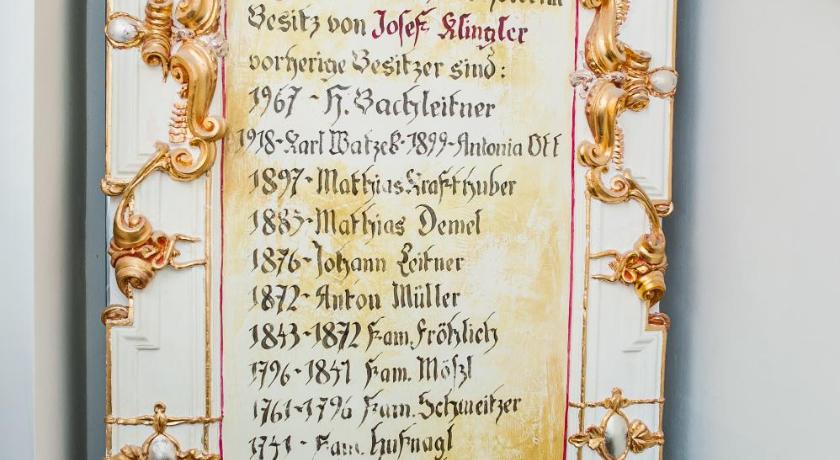 Besitz von Josef Klingler
vorherige Besitzer sind:
1967 - H. Bachleitner
1918 - Karl Watzek - 1899 - Antonia Ott
1897 - Mathias Krafthuber
1885 - Mathias Demel
1876 - Johann Leitner
1872 - Anton Müller
1843 - 1872 Fam. Fröhlich
1796 - 1841 Fam. Mößl
1761 - 1796 Fam. Schweitzer
1741 - Fam. Hufnagl